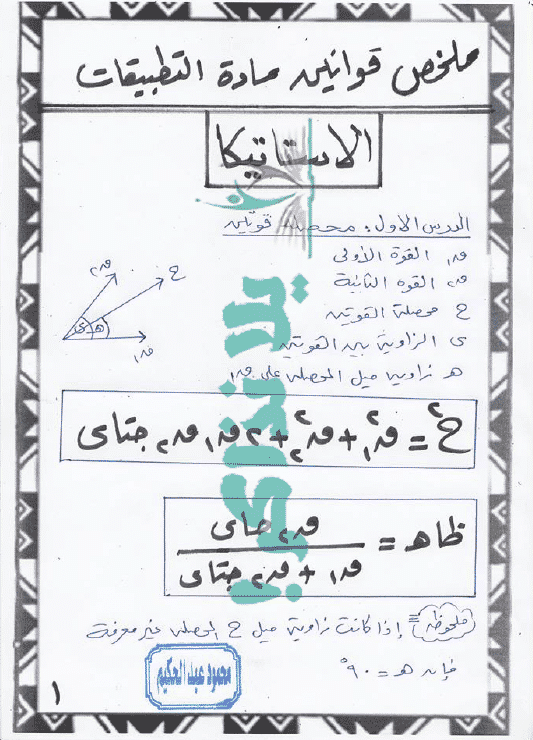 ملخص قوانين مادة التطبيقات
الاستاتيكا
الدرس الاول: محصلة قوتين
ق١ القوة الأولى
ق٢ القوه الثانية
ح محصلة القوتين
ى الزاوية بين القوتين
هـ زاوية ميل المحصله على ق١
ق٢
ح
ى هـ
ق١
ح٢ = ق١٢ + ق٢٢ + ٢ ق١ ق٢ جتاى
ظاهـ = ق٢ جاى
ق١ + ق٢ جتاى
ملحوظه = إذا كانت زاوية ميل ح المحصله غير معرفة
فإنه هـ = ٩٠°
محمود عبد الحكيم
١
يلا نذاكر